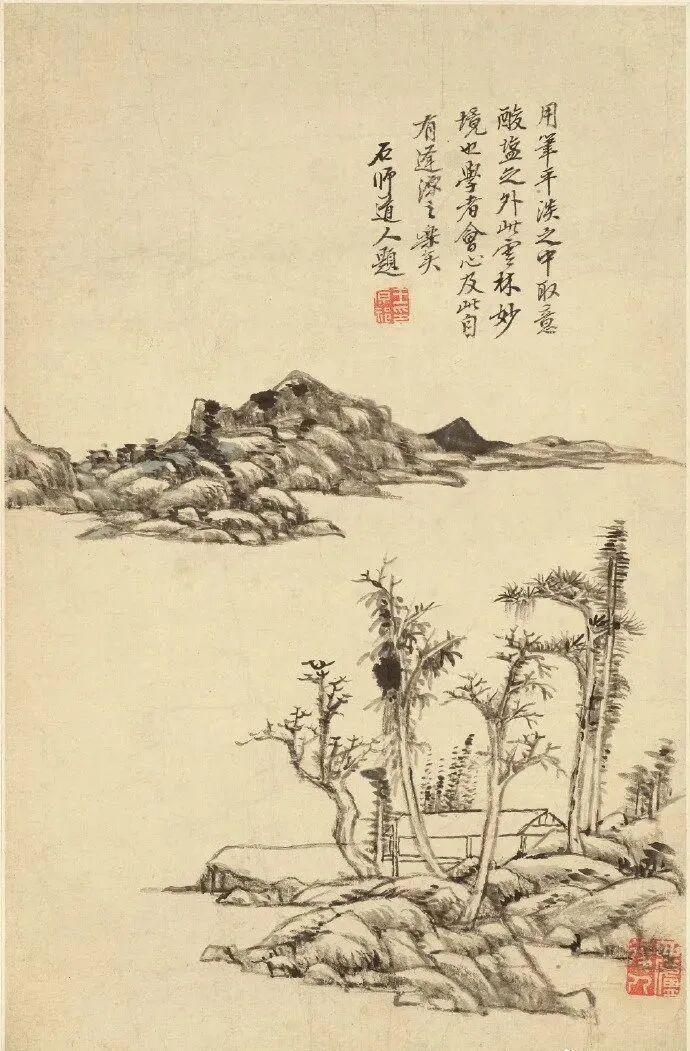 用筆平淡之中取意
酸鹽之外此雲林妙
境也學者會心及此自
有逢源之樂矣
石師道人題
王原祁印